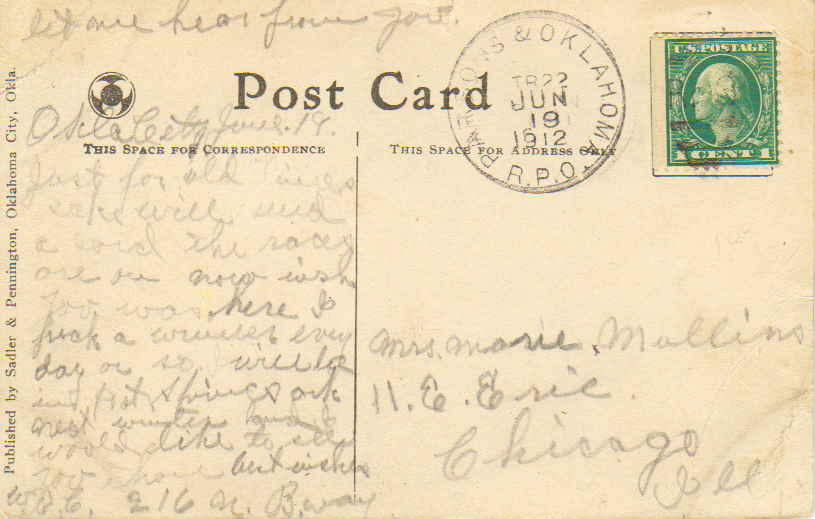 let me hear from you.
Post Card
Okla City June. 19.
THIS SPACE FOR CORRESPONDENCE
Just for old times
sake will send
a card the races
are on now wish
you was here I
pick a winner every
day or so, I will be
in Hot Springs ark
next winter and I
would like to see
you there best wishes
216 N. B.way
THIS SPACE FOR ADDRESS ONLY
PARSONS & OKLAHOMA
TR22
JUN
19
1912
R.P.O.
U.S. POSTAGE
1 CENT 1
Mrs. Marie. Mullins
11. E. Erie.
Chicago
Ill
Published by Sadler & Pennington, Oklahoma City, Okla.